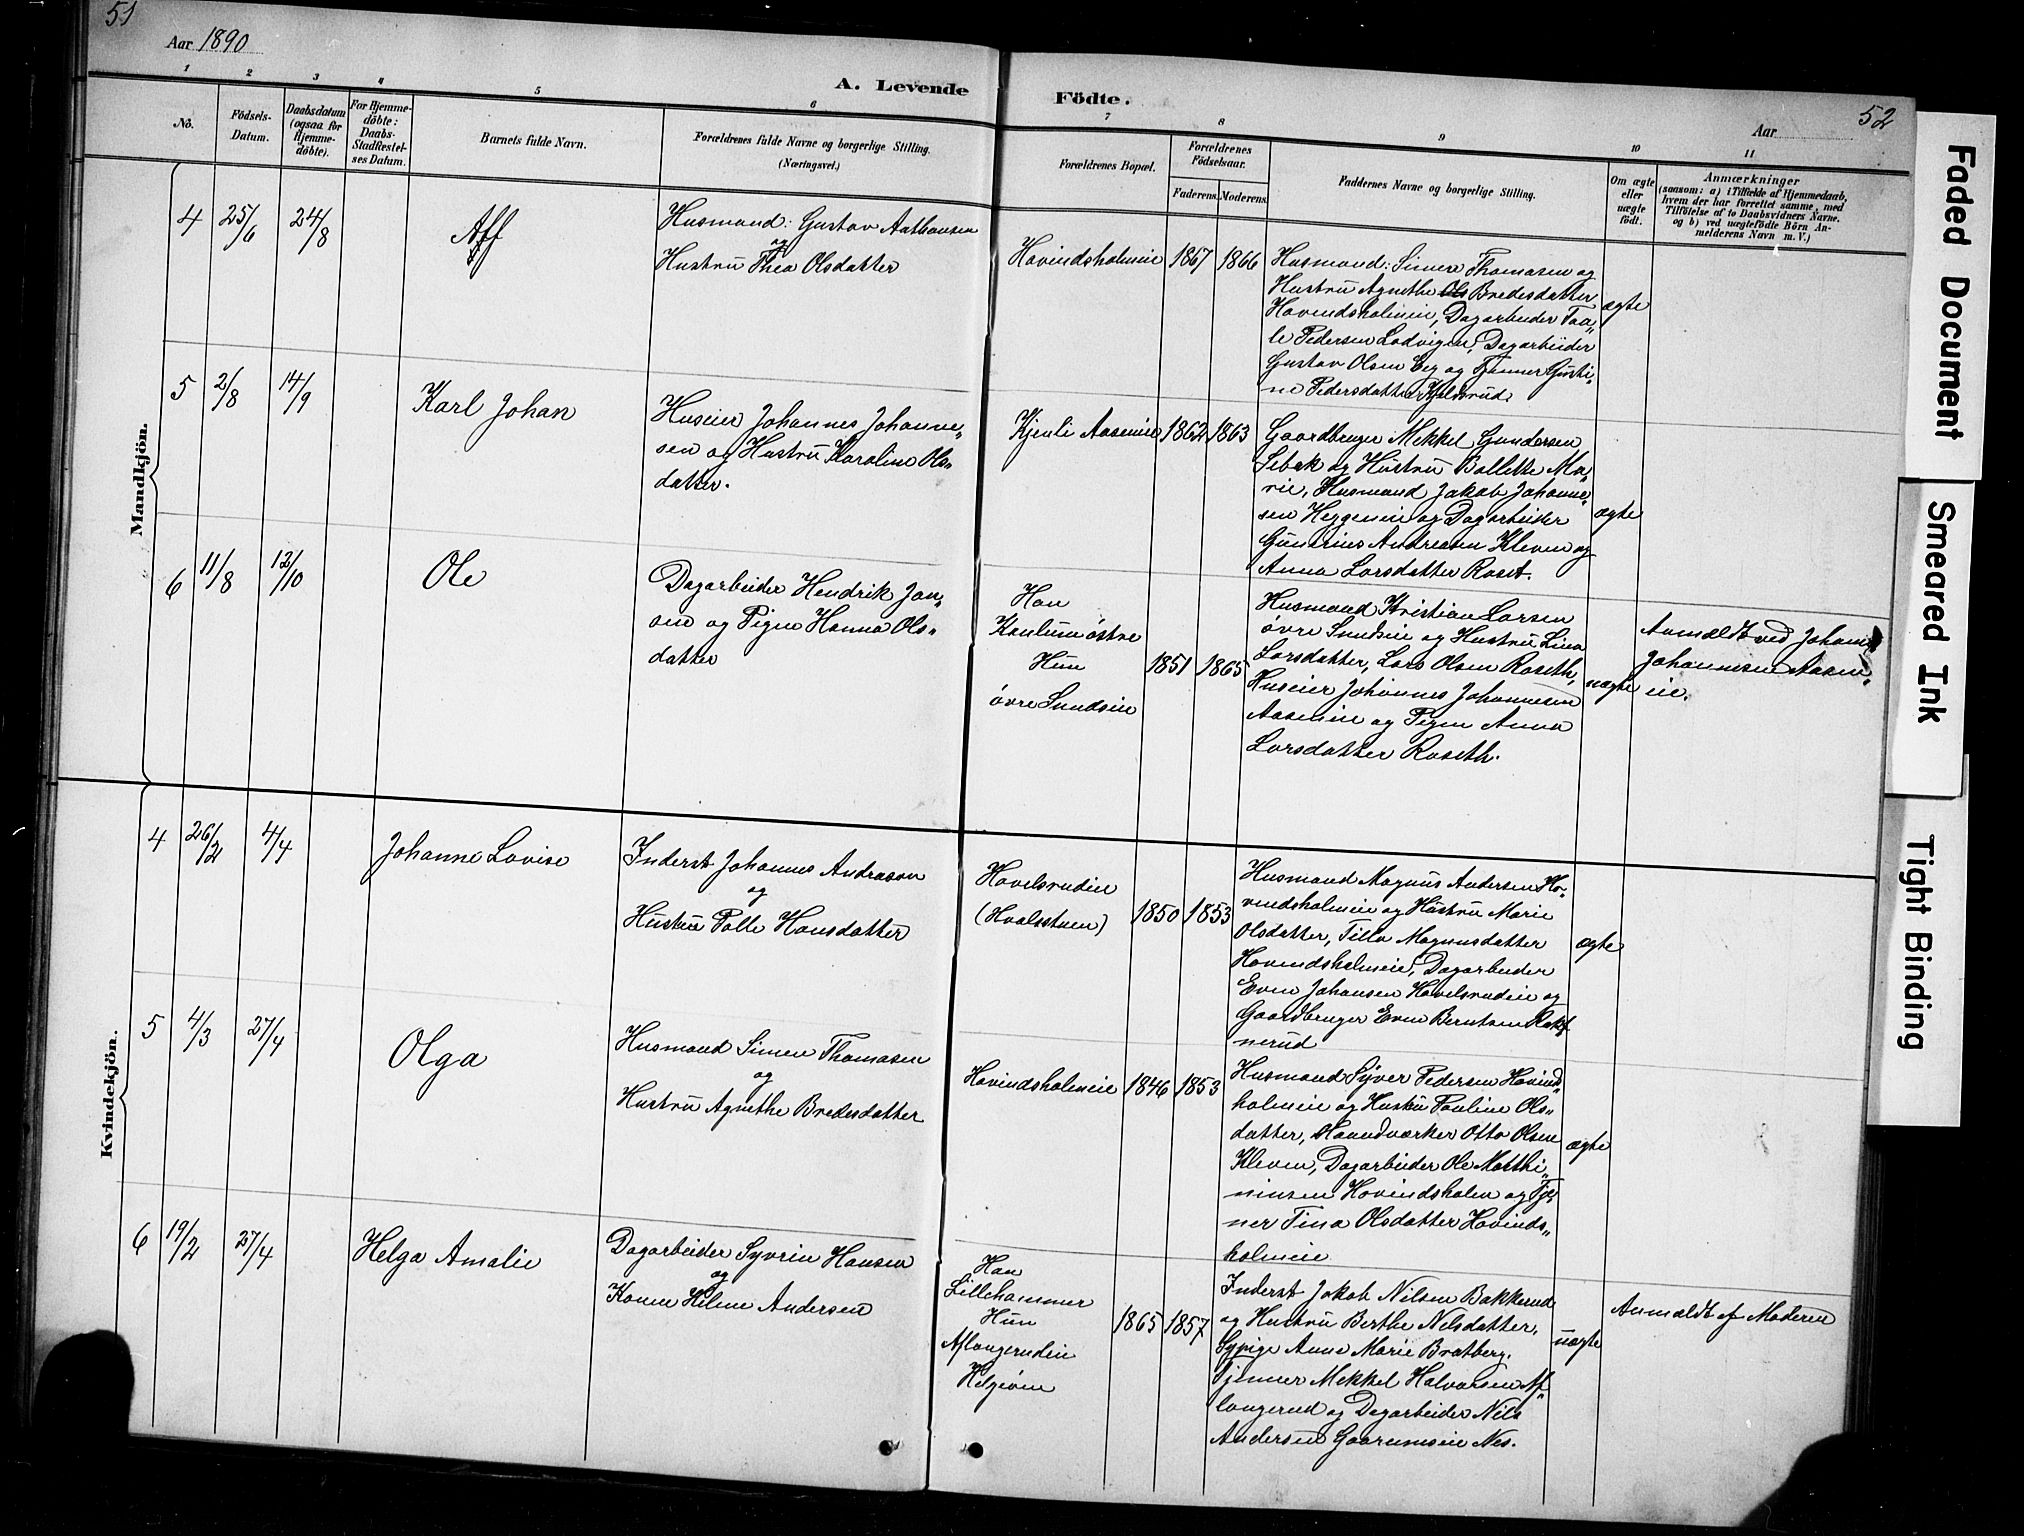 51
Aar 1890
A. Levende
Födte.
Aar
52
1
2
3
4
5
6
7
8
9
10
11
No.
Födsels-
Datum.
Daabsdatum
(ogsaa for
Hjemme-
döbte).
For Hjemme-
döbte:
Daabs-
Stadfæstel-
ses Datum.
Barnets fulde Navn.
Forældrenes fulde Navne og borgerlige Stilling.
(Næringsvei.)
Forældrenes Bopæl.
Forældrenes
Födselsaar.
Faderens.
Moderens.
Faddernes Navne og borgerlige Stilling.
Om ægte
eller
uægte
födt.
Anmærkninger
(saasom: a) i Tilfælde af Hjemmedaab,
hvem der har forrettet samme, med
Tilföielse af to Daabsvidners Navne.
og b) ved uægtefödte Börn An-
melderens Navn m. V.)
Mandkjön.
4
25/6
24/8
Alf
Husmand: Gustav Aathansen
og
Hustru Thea Olsdatter
Hovindsholmeie
1867
1866
Husmand: Simen Thomasen og
Hustru Agnethe Ols Bredesdatter
Hovindsholmeie, Dagarbeider Paa„
le Pedersen Lodvigen, Dagarbeider
Gustav Olsen Eeg og Tjener Gusti„
ne Pedersdatter Kjelsrud.
ægte
5
2/8
14/9
Karl Johan
Huseier Johannes Johanne„
sen og Hustru Karoline Ols„
datter.
Kjenli Aaseneie
1862
1863
Gaardbruger Mekkel Gundersen
Sebek og Hustru Bollette Ma„
rie, Husmand Jakob Johanne„
sen Heggeneie og Dagarbeider
Gunerius Andreasen Kleven og
Anna Larsdatter Roset.
ægte
6
11/8
12/10
Ole
Dagarbeider Hendrik Jan„
sen og Pigen Hanna Ols„
datter
Han
Kaulum östre
Hun
övre Sundseie
1851
1865
Husmand Kristian Larsen
övre Sundseie og Hustru Lina
Larsdatter, Lars Olsen Roseth,
Huseier Johannes Johannesen
Aaseneie og Pigen Anna
Larsdatter Roseth.
uægte
Anmældt ved Johans
Johannesen Aasen„
eie.
Kvindekjön.
4
26/2
4/4
Johanne Lovise
Inderst Johannes Andreasen
og
Hustru Polle Hansdatter
Hovelsrudeie
(Hvalsstuen)
1850
1853
Husmand Magnus Andersen Ho„
vindsholmeie og Hustru Marie
Olsdatter, Tilla Magnusdatter
Hovindsholmeie, Dagarbeider
Even Johansen Hovelsrudeie og
Gaardbruger Even Berntsen
nerud
ægte
5
4/3
27/4
Olga
Husmand Simen Thomasen
og
Hustru Agnethe Bredesdatter
Hovindsholmeie
1846
1853
Husmand Syver Pedersen Hovinds„
holmeie og Hustru Pauline Ols„
datter, Haandværker Otto Olsen
Kleven, Dagarbeider Ole Matthi„
ninsen Hovindsholm og Tje„
ner Tina Olsdatter Hovinds„
holmeie
ægte
6
19/2
27/4
Helga Amalie
Dagarbeider Syvrin Hansen
og
Konen Helene Andersen
Han
Lillehammer
Hun
Aflangerudeie
Helgeöen
1865
1857
Inderst Jakob Nilsen Bakkerud
og Hustru Berthe Nilsdatter,
Sypige Anne Marie Bratberg.
Tjener Mekkel Halvorsen Af„
langerud og Dagarbeider Nils
Andersen Gaarumseie Nes.
uægte
Anmældt af Moderen
Faded Document
Smeared Ink
Tight Binding